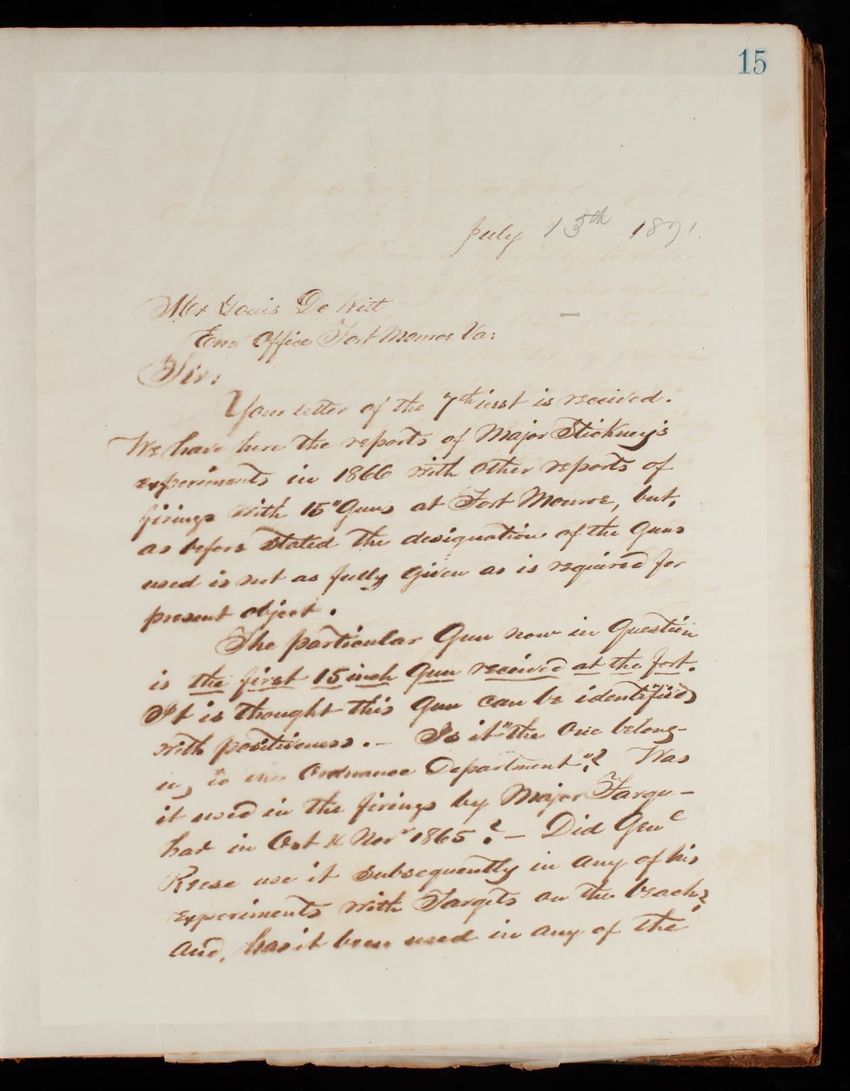 15
July 13th 1871.
Mr Louis De Witt
Eng Office Fort Monroe Va:
Sir:
Your letter of the 7th inst is received.
We have here the reports of Major Stickney's
experiments in 1866 with other reports of
firings with 15" Guns at Fort Monroe, but,
as before stated the designation of the guns
used is not as fully given as is required for
present object.
The particular Gun now in question
is the first 15 inch Gun received at the fort.
It is thought this Gun can be identified
with positiveness. - Is it "the one belong-
ing to the Ordnance Department"? Was
it used in the firings by Major Farqu-
har in Oct & Novr 1865? - Did Genl
Reese use it subsequently in any of his
experiments with Targets on the beach?
And, has it been used in any of the